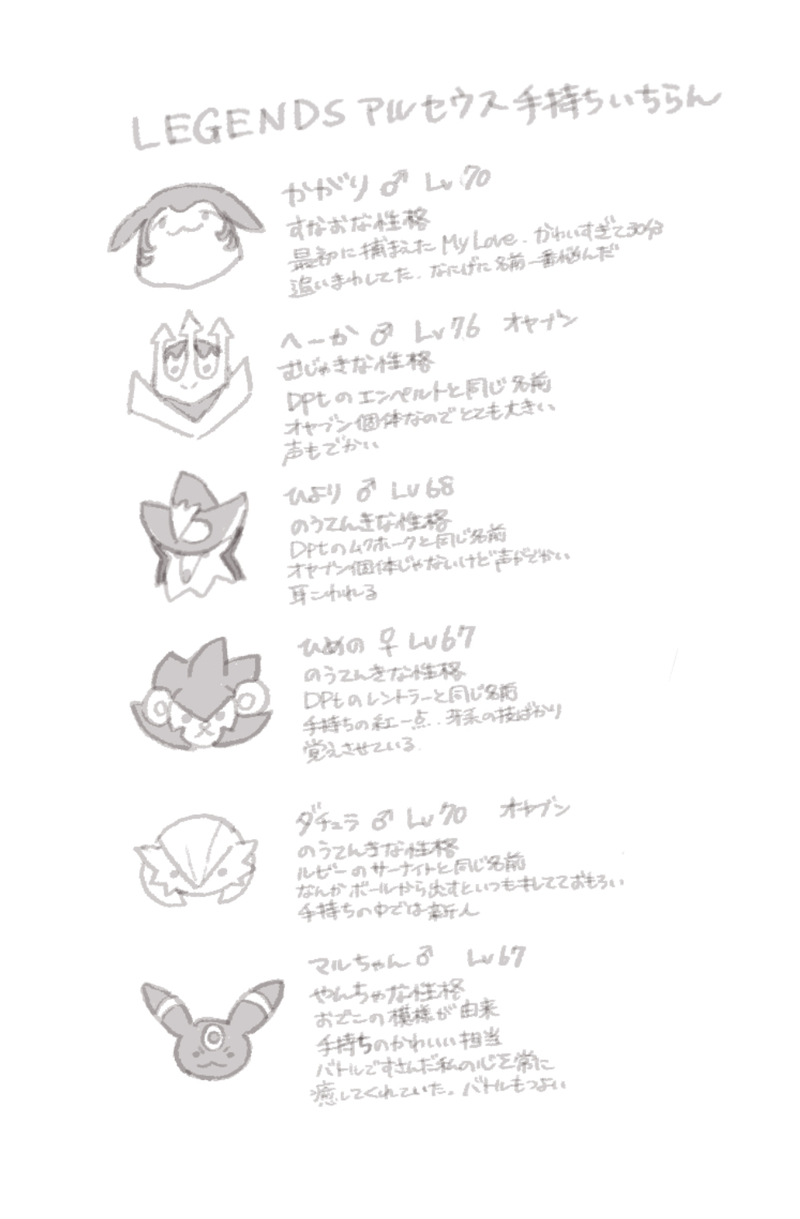 LEGENDS アルセウス 手持ちいちらん
かがり ♂ Lv.70
すなおな性格
最初に捕まえた My Love. かわいすぎて30分
追いまわしてた. なにげに名前一番悩んだ
へーか ♂ Lv76 オヤブン
むじゃきな性格
DPtのエンペルトと同じ名前
オヤブン個体なのでとても大きい
声もでかい
ひより ♂ Lv68
のうてんきな性格
DPtのムクホークと同じ名前
オヤブン個体じゃないけど声がでかい
耳こわれる
ひめの ♀ Lv67
のうてんきな性格
DPtのレントラーと同じ名前
手持ちの紅一点. 牙系の技ばかり
覚えさせている.
ダチュラ ♂ Lv70 オヤブン
のうてんきな性格
ルビーのサーナイトと同じ名前
なんかボールから出すといつもキレてておもろい
手持ちの中では新人
マルちゃん ♂ Lv67
やんちゃな性格
おでこの模様が由来
手持ちのかわいい担当
バトルですさんだ私の心を常に
癒してくれていた. バトルもつよい